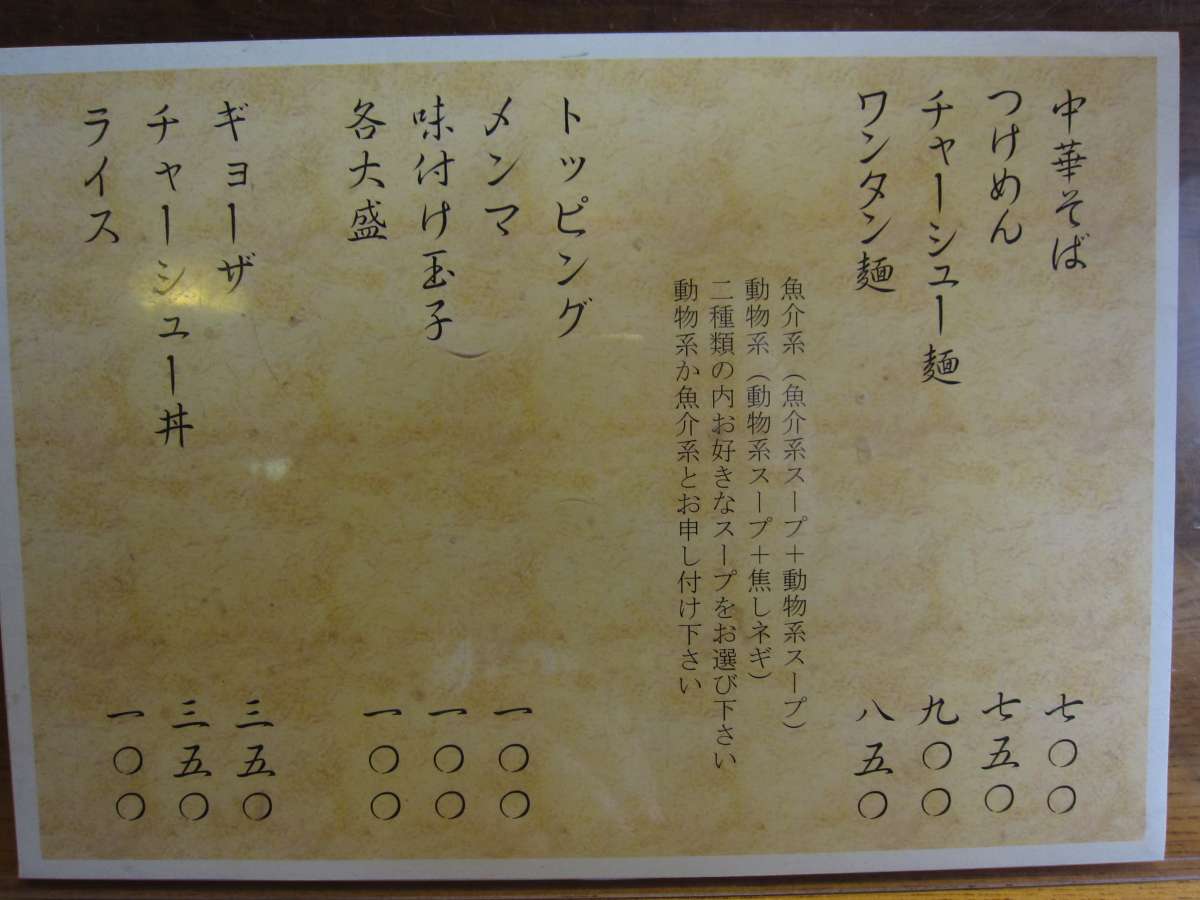 中華そば 七〇〇
つけめん 七五〇
チャーシュー麺 九〇〇
ワンタン麺 八五〇
魚介系（魚介系スープ＋動物系スープ）
動物系（動物系スープ＋焦しネギ）
二種類の内お好きなスープをお選び下さい
動物系か魚介系とお申し付け下さい
トッピング
メンマ 一〇〇
味付け玉子 一〇〇
各大盛 一〇〇
ギョーザ 三五〇
チャーシュー丼 三五〇
ライス 一〇〇